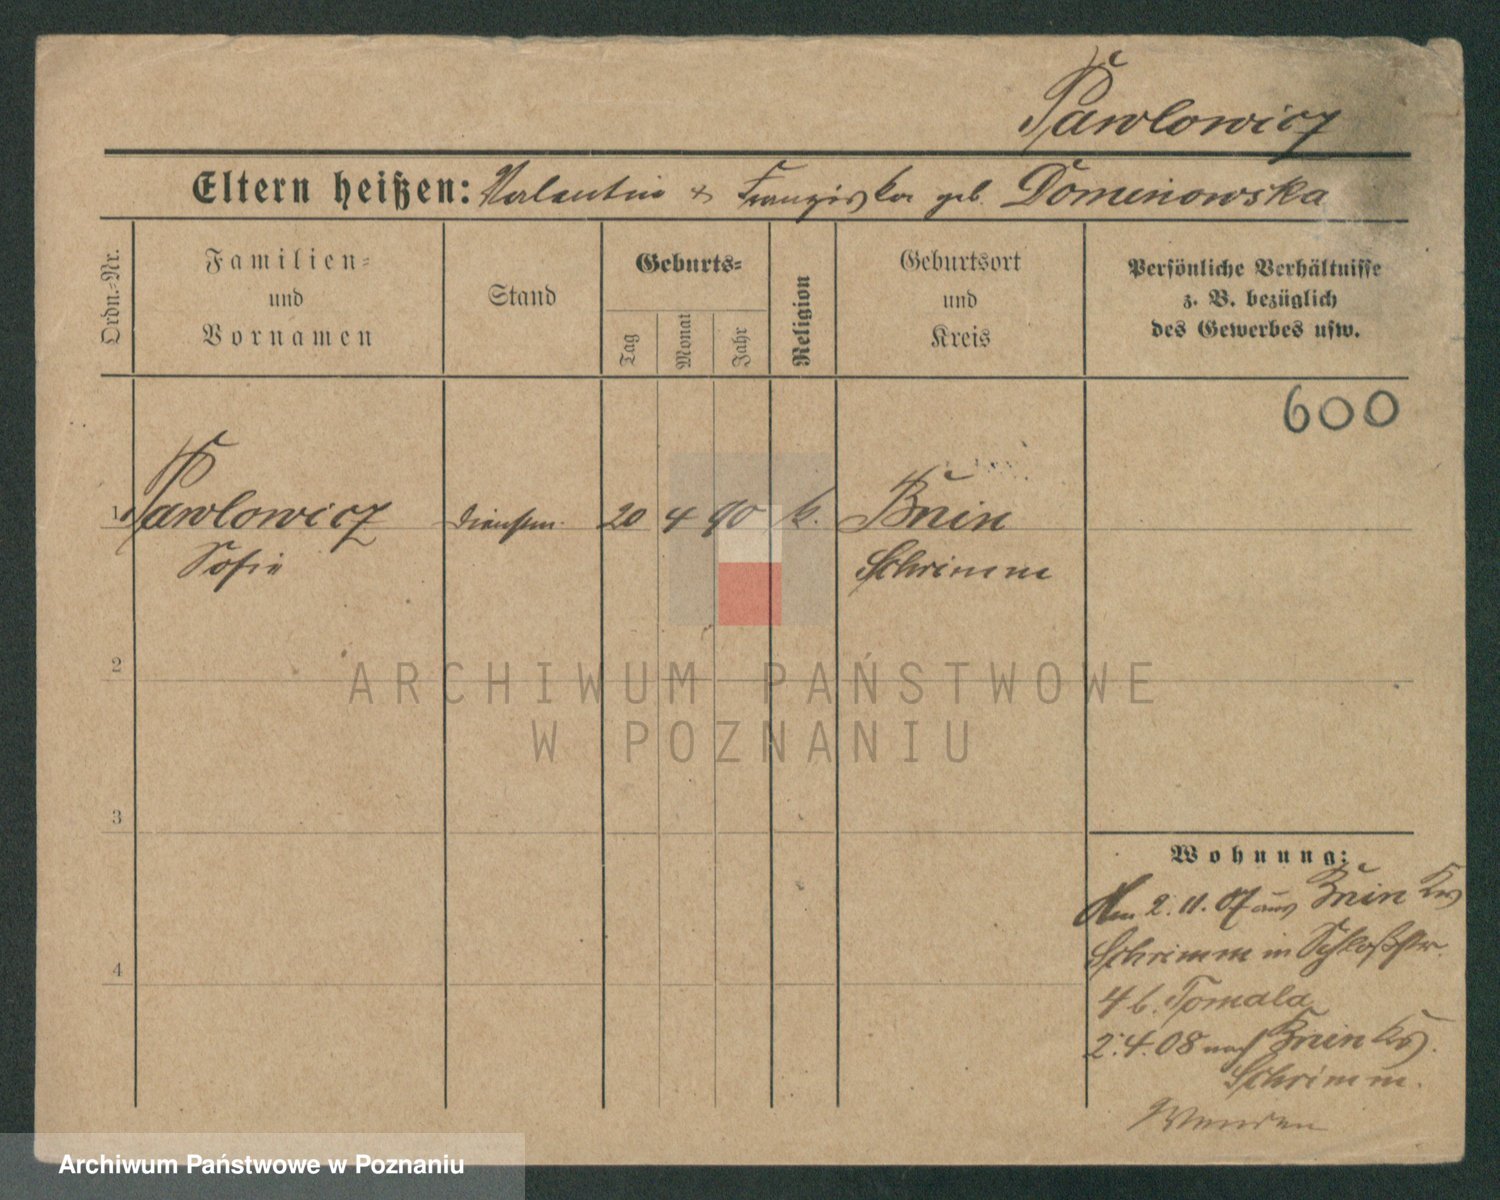 Pawlowicz
Eltern heißen: Valentin + Franziska geb. Dominowska
Ordn.-Nr.
Familien-
und
Vornamen
Stand
Geburts-
Tag
Monat
Jahr
Religion
Geburtsort
und
Kreis
Persönliche Verhältnisse
z. B. bezüglich
des Gewerbes usw.
600
1 Pawlowicz Dienstm. 20 4 90 k. Bnin
Sofie Schrimm
2
3
4
Wohnung:
Am 2.11.07 aus Bnin Krs
Schrimm in Schloßstr.
4 b. Tomala
2.4.08 nach Bnin Krs.
Schrimm.
Wenden
ARCHIWUM PAŃSTWOWE
W POZNANIU
Archiwum Państwowe w Poznaniu